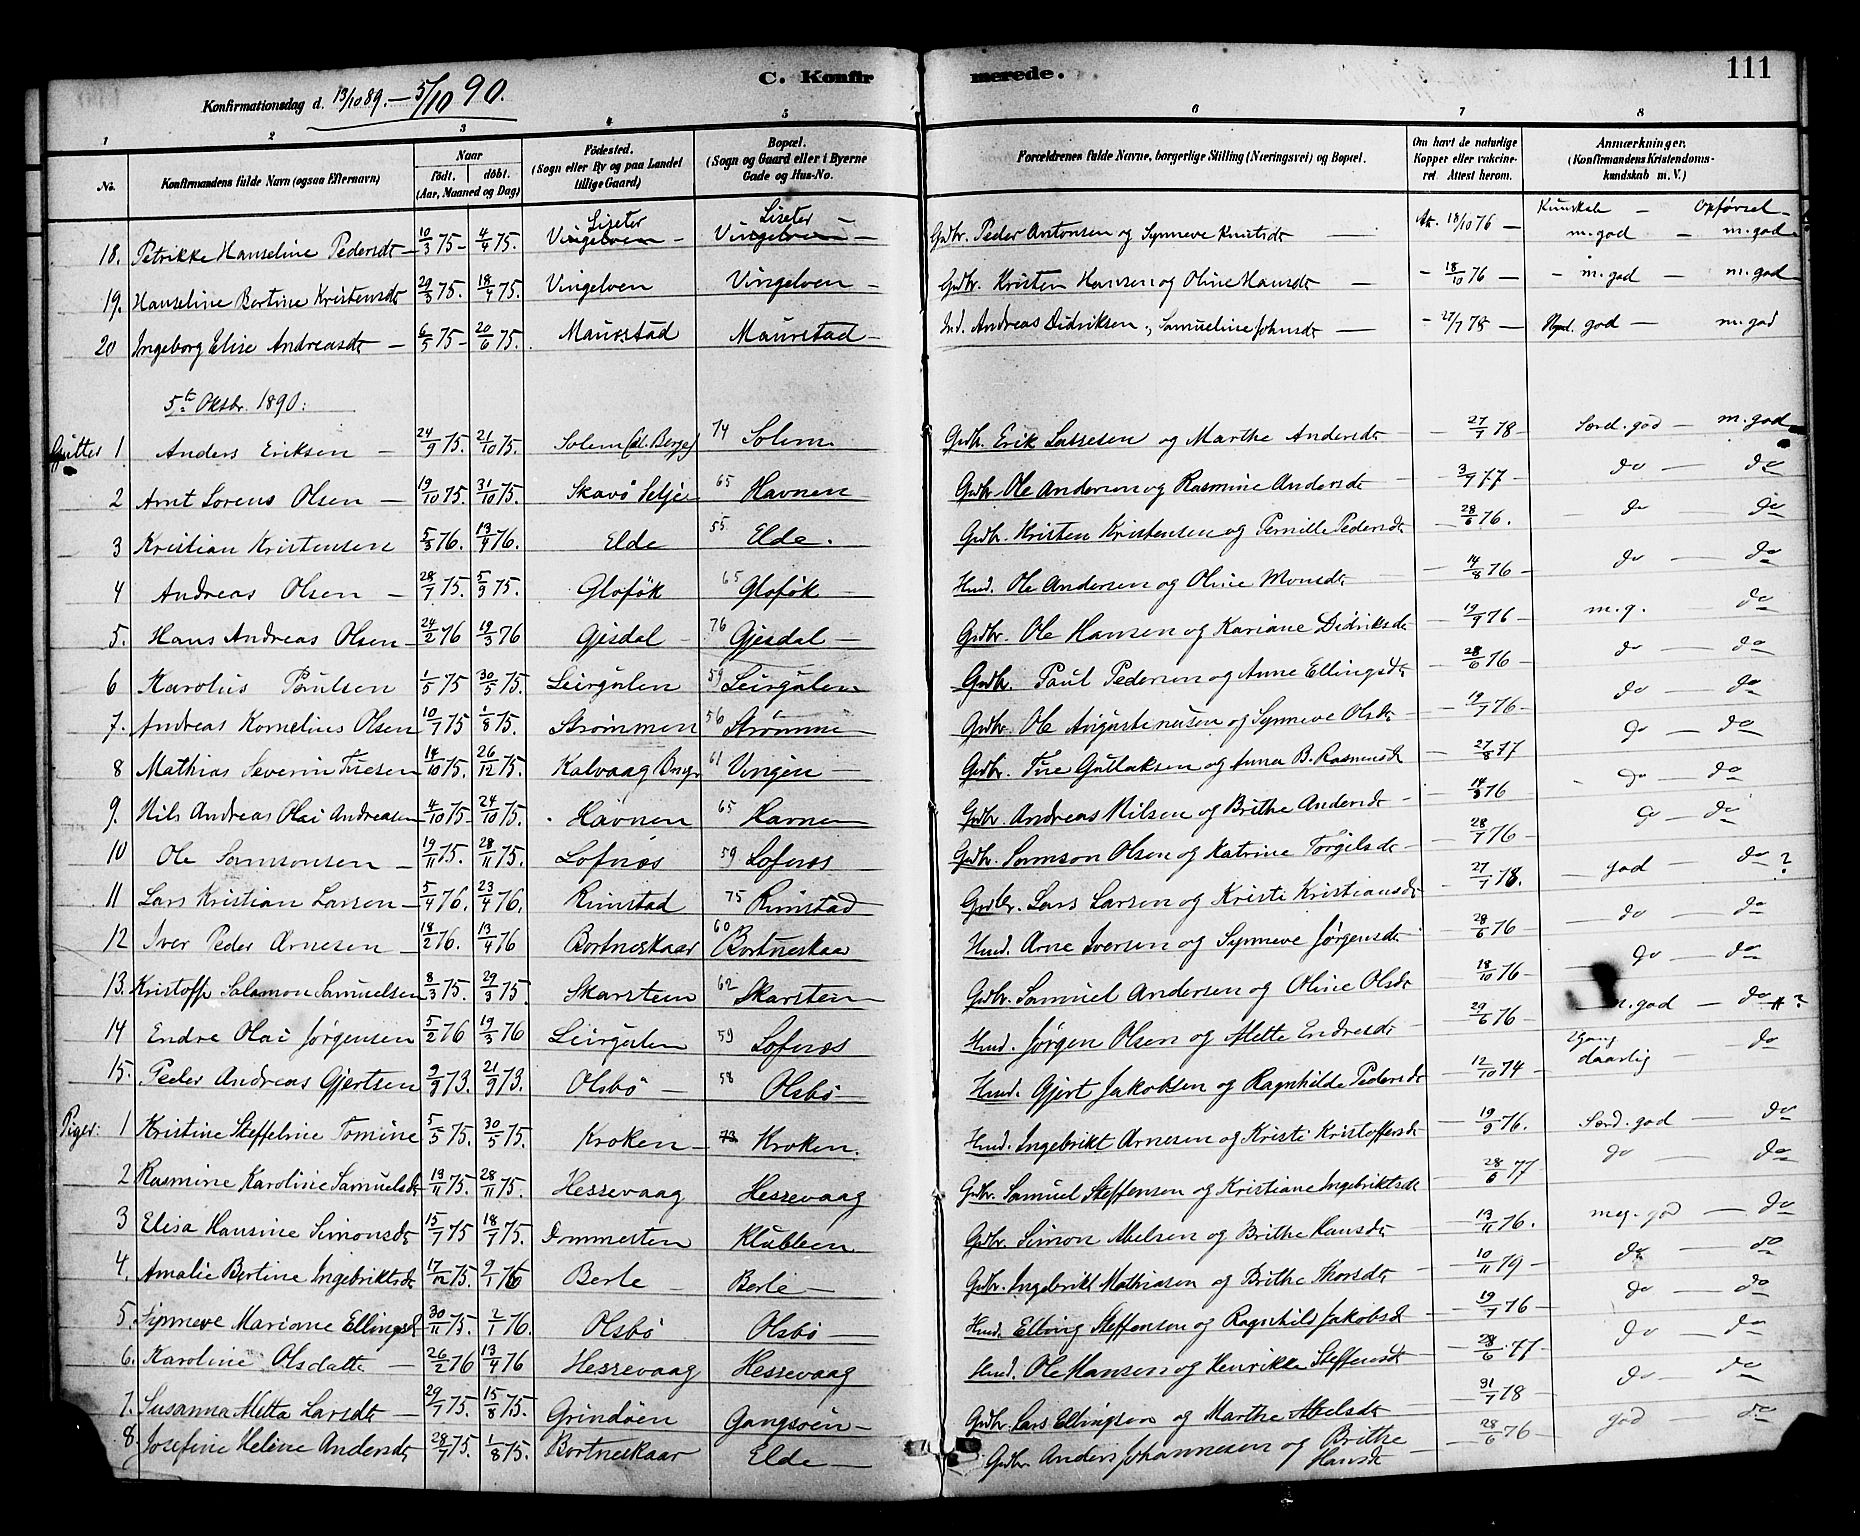 C. Konfirmerede. 111
Konfirmationsdag d. 13/10 89. — 5/10 90.
1 2 3 4 5 6 7 8
No. Konfirmandens fulde Navn (ogsaa Efternavn) Naar födt. döbt. (Aar, Maaned og Dag) Födested. (Sogn eller By og paa Landet tillige Gaard) Bopæl. (Sogn og Gaard eller i Byerne Gade og Hus-No. Forældrenes fulde Navne, borgerlige Stilling (Næringsvei) og Bopæl. Om havt de naturlige Kopper eller vakcineret. Attest herom. Anmærkninger. (Konfirmandens Kristendomskundskab m. V.)
Kunskab — Opførsel
18. Petrikke Hanseline Pedersdt — 10/3 75 — 4/4 75. Liseter Liseter — Gmbr. Peder Antonsen og Synneve Knutsdt — At. 18/10 76 — m.god — m.god
19. Hanseline Bertine Kristensdt 29/3 75. 18/4 75. Vingelven Vingelven — Gmbr. Kristen Hansen og Oline Hansdt — 18/10 76 — m.god — m.god
20 Ingeborg Elise Andreasdt — 6/5 75 — 20/6 75. Maurstad Maurstad — Ind. Andreas Didriksen, Samueline Johnsdt — 27/7 78 — god — m.god
5te Oktbr. 1890:
Gutter 1 Anders Eriksen — 24/9 75. 21/10 75. Solem 74 Solem Gmbr. Erik Lassesen og Marthe Andersdt — 27/7 78 — Særd. god — m.god
2 Arnt Lorens Olsen — 19/10 75. 31/10 75. Skavö Selje 65 Havnen Gmbr. Ole Andersen og Rasmine Andersdt — 3/9 77 — do — do
3 Kristian Kristensen 5/3 76. 13/4 76. Elde 55 Elde. Gmbr. Kristen Kristensen og Pernille Pedersdt — 28/6 76. — do — do
4 Andreas Olsen — 28/7 75. 5/9 75. Glofök 65 Glofök — Hmd. Ole Andersen og Oline Monsdt — 14/8 76 — do — do
5. Hans Andreas Olsen — 24/2 76 19/3 76 Gjesdal 76 Gjesdal — Gmbr. Ole Hansen og Kariane Didriksdt — 19/9 76 — m.g. do
6 Karolus Paulsen 1/5 75 30/5 75. Leirgulen 59 Leirgulen Gmbr. Paul Pedersen og Anne Ellingsdt — 28/6 76 — do — do
7. Andreas Kornelius Olsen 10/7 75 1/8 75. Strömmen 56 Strömme Gmbr. Ole Augustinusen og Synneve Olsdt — 19/7 76 — do — do
8 Mathias Severin Tuesen 14/10 75. 26/12 75. Kalvaag 61 Vingen — Gmbr. Tue Gutlaksen og Anna B. Rasmusdt — 27/8 77 do — do
9. Nils Andreas Olai Andreasen 4/10 75 — 24/10 75. Havnen 65 Havnen Gmbr. Andreas Nilsen og Brithe Andersdt — 14/8 76 do — do
10 Ole Samsonsen — 19/11 75. 28/11 75. Lofnæs 59 Lofnæs Gmbr. Samson Olsen og Katrine Torgilsdt — 28/7 76 — do — do
11 Lars Kristian Larsen — 5/4 76. 23/4 76. Rimstad 75 Rimstad Gmbr. Lars Larsen og Kristi Kristiansdt — 27/7 78. — god do ?
12 Iver Peder Arnesen — 18/2 76. 13/4 76 Bortneskaar 60 Bortneskaar Hmd. Arne Iversen og Synneve Jørgensdt — 28/6 76 — do — do
13. Kristoffer Salamon Samuelsen 8/3 75. 29/3 75. Skarstein 62 Skarstein — Gmbr. Samuel Andersen og Oline Olsdt 18/10 76 — do — do
14 Endre Olai Jørgensen 5/2 76 19/3 76 Leirgulen 59 Lofnæs Hmd. Jørgen Olsen og Mette Endresdt — 29/6 76 — m.god — do ?
15. Peder Andreas Gjertsen 9/9 73. 21/9 73. Olsbö — 58 Olsbö — Hmd. Gjert Jakobsen og Ragnhilde Pedersdt — 12/10 74 — daarlig — do
Piger: 1 Kristine Steffeline Tomine 5/5 75. 30/5 75. Kroken — 73 Kroken. Hmd. Ingebrikt Arnesen og Kristi Kristoffersdt — 19/9 76. Særd. god do
2 Rasmine Karoline Samuelsdt 19/11 75. 28/11 75. Hessevaag Hessevaag Gmbr. Samuel Steffensen og Kristiane Ingebriktsdt 28/6 77 do — do
3 Elisa Hansine Simonsdt 15/7 75 18/7 75. Klubben Gmbr. Simon Abelsen og Brithe Hansdt — 13/11 76. meg. god — do
4. Amalie Bertine Ingebriktsdt 17/12 75. 9/1 76 Berle — Berle — Gmbr. Ingebrikt Mathiasen og Brithe Thorsdt 10/11 79 — do — do
5. Synneve Mariane Ellingsd 30/11 75. 2/1 76. Olsbö Olsbö — Hmd. Elling Steffensen og Ragnhild Jakobsd — 19/7 76 — do — do
6. Karoline Olsdatter — 26/2 76 13/4 76 Hessevaag Hessevaag Hmd. Ole Hansen og Henrikke Steffensdt — 28/6 77 — do — do
7. Susanna Metta Larsdt — 29/7 75. 15/8 75. Grindöen Gangsöen — Gmbr. Lars Ellingsen og Marthe Abelsdt — 31/7 78 — do — do
8. Josefine Helene Andersdt 28/7 75. 1/8 75. Bortneskaar Elde — Gmbr. Anders Johannesen og Brithe Hansdt — 28/6 76 — god do